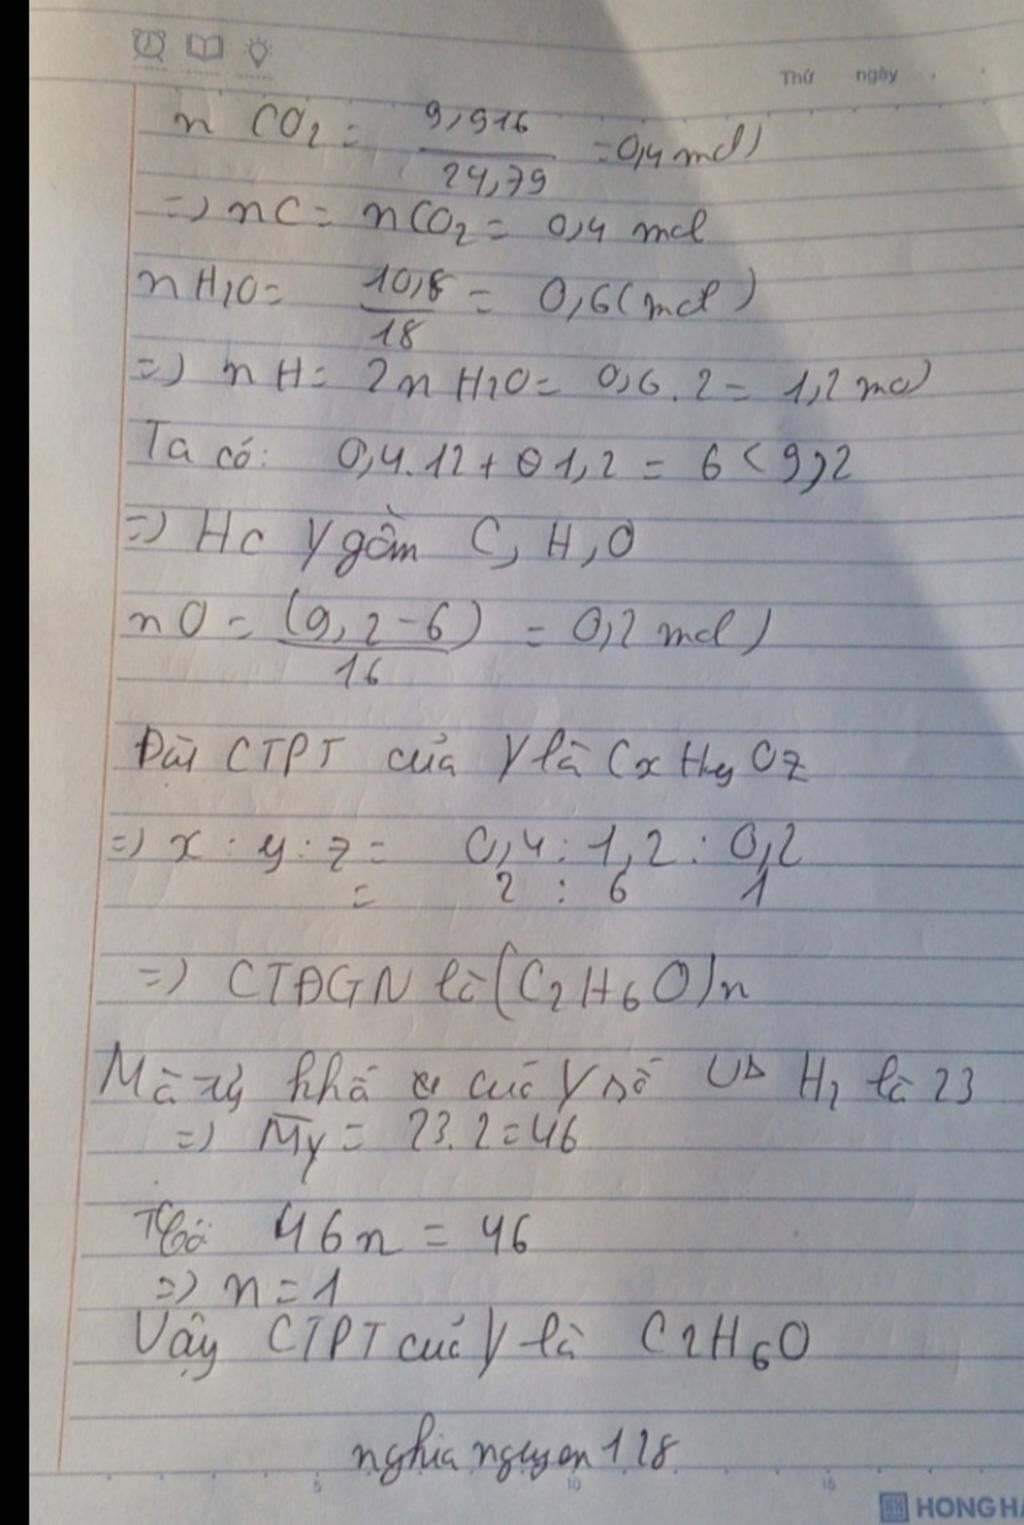 Thứ ngày
n CO2 = 9,916 / 24,79 = 0,4 mol)
=> nC = nCO2 = 0,4 mol
nH2O = 10,8 / 18 = 0,6 (mol)
=> nH = 2nH2O = 0,6.2 = 1,2 mol
Ta có: 0,4.12 + 0 1,2 = 6 < 9,2
=> Hc Y gồm C, H, O
nO = (9,2 - 6) / 16 = 0,2 mol)
Đặt CTPT của Y là CxHyOz
=> x : y : z = 0,4 : 1,2 : 0,2
= 2 : 6 1
=> CTĐGN là (C2H6O)n
Mà tỷ khố của Y so vs H2 là 23
=> My = 23.2 = 46
46n = 46
=> n = 1
Vậy CTPT của Y là C2H6O
nghia nguyen 128
5 10 15
HONG HA